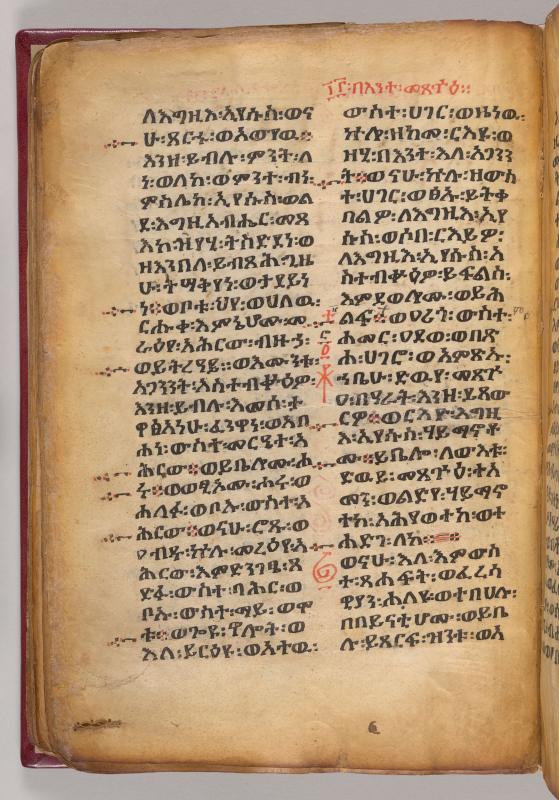 ፲፪፡በእንተ፡መጻጕዕ፡
ለእግዚእ፡ኢየሱስ፡ወና
ሁ፡ጸርሑ፡ወአውየዉ፡
እንዘ፡ይብሉ፡ምንት፡ለ
ነ፡ወለከ፡ወምንት፡ብነ፡
ምስሌከ፡ኢየሱስ፡ወል
ደ፡እግዚአብሔር፡መጻ
እከ፡ዝየሂ፡ትስድደነ፡ወ
ዘእንበለ፡ይብጻሕ፡ጊዜ
ሁ፡ትሣቅየነ፡ወታደይነ
ነ፡ወቦቱ፡ህየ፡ወሀለዉ፡
ርሑቀ፡እምኔሆሙ፡መ
ራዕየ፡አሕርው፡ብዙኅ፡
ወይትረዓይ፡ወእሙንቱ፡
አጋንንት፡አስተብቍዕዎ፡
እንዘ፡ይብሉ፡እመሰ፡ታ
ወፅአነሁ፡ፈንወነ፡ወአብ
ሐነ፡ውስተ፡መርዔተ፡አ
ሕርው፡ወይቤሎሙ፡ሑ
ሩ፡ወወፂኦሙ፡ሖሩ፡ወ
ሐለፉ፡ወቦኡ፡ውስተ፡አ
ሕርው፡ወናሁ፡ሮጹ፡ወ
ዐብዱ፡ኵሉ፡መራዕየ፡አ
ሕርው፡እምድንገፄ፡ጸ
ድፉ፡ውስተ፡ባሕር፡ወ
ቦኡ፡ውስተ፡ማይ፡ወሞ
ቱ፡ወጐዩ፡ኖሎት፡ወ
እለ፡ይርዕዩ፡ወአተዉ፡
ውስተ፡ሀገር፡ወዜነዉ፡
ኵሎ፡ዘከመ፡ርእዩ፡ወ
ዘሂ፡በእንተ፡እለ፡አጋንን
ት፡ወናሁ፡ኵሉ፡ዘውስ
ተ፡ሀገር፡ወፅኡ፡ይትቀ
በልዎ፡ለእግዚእ፡ኢየ
ሱስ፡ወሶበ፡ርእይዎ፡
ለእግዚእ፡ኢየሱስ፡አ
ስተብቍዕዎ፡ይፍልስ፡
እምደወሎሙ፡ወይሕ
ልፍ፡ወዐሪጎ፡ውስተ፡
ሐመር፡ዐደወ፡ወበጽ
ሐ፡ሀገሮ፡ወአምጽኡ፡
ኀቤሁ፡ድዉየ፡መጻጕ
ዐ፡በዓራት፡እንዘ፡ይጸው
ርዎ፡ወርእዮ፡እግዚ
እ፡ኢየሱስ፡ሃይማኖቶ
ሙ፡ይቤሎ፡ለውእቱ፡
ድዉይ፡መጻጕዕ፡ተአ
መን፡ወልድየ፡ሃይማኖ
ትከ፡አሕየወተከ፡ወተ
ሐድገ፡ለከ፡
ወናሁ፡እለ፡እምውስ
ተ፡ጸሐፍት፡ወፈሪሳ
ዊያን፡ሐለዩ፡ወተበሀሉ፡
በበይናቲሆሙ፡ወይቤ
ሉ፡ይጸርፍ፡ዝንቱ፡ወእ